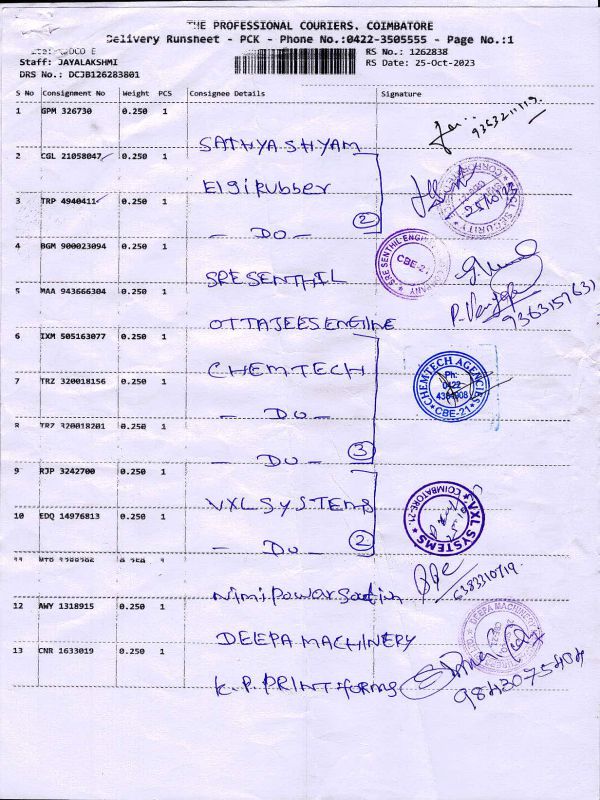 THE PROFESSIONAL COURIERS, COIMBATORE
Delivery Runsheet - PCK - Phone No.:0422-3505555 - Page No.:1
RS No.: 1262838
Staff: JAYALAKSHMI
RS Date: 25-Oct-2023
DRS No.: DCJB126283801
S No Consignment No Weight PCS Consignee Details Signature
1 GPM 326730 0.250 1 SATHYA SHYAM 9363211119
2 CGL 21058047 0.250 1 Elgi Rubber
3 TRP 4940411 0.250 1 - DO - 2
4 BGM 900023094 0.250 1 SRE SENTHIL
SRE SENTHIL ENGINE COMPANY CBE-21
5 MAA 943666304 0.250 1 OTTAJEES ENGINE 9363157631
6 IXM 505163077 0.250 1 CHEMTECH
7 TRZ 320018156 0.250 1 - DO -
CHEMTECH AGENCIES Ph: 0422 CBE-21
8 TRZ 320018201 0.250 1 - DO - 3
9 RJP 3242700 0.250 1 VXL SYSTEMS
10 EDQ 14976813 0.250 1 - DO - 2
VXL SYSTEMS COIMBATORE-21
11 0.250 1 6383310719
12 AWY 1318915 0.250 1 DEEPA MACHINERY
DEEPA MACHINERY
13 CNR 1633019 0.250 1 K.P. PRINT forms 9843075404